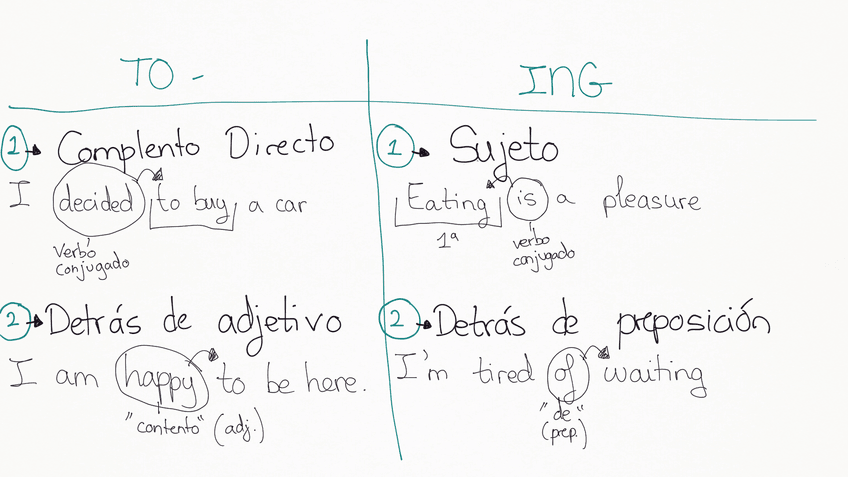 TO -
1 Complento Directo
I decided to buy a car
Verbo
conjugado
2 Detrás de adjetivo
I am happy to be here.
"contento" (adj.)
ING
1 Sujeto
Eating is a pleasure
1ª
verbo
conjugado
2 Detrás de preposición
I'm tired of waiting
"de"
(prep.)